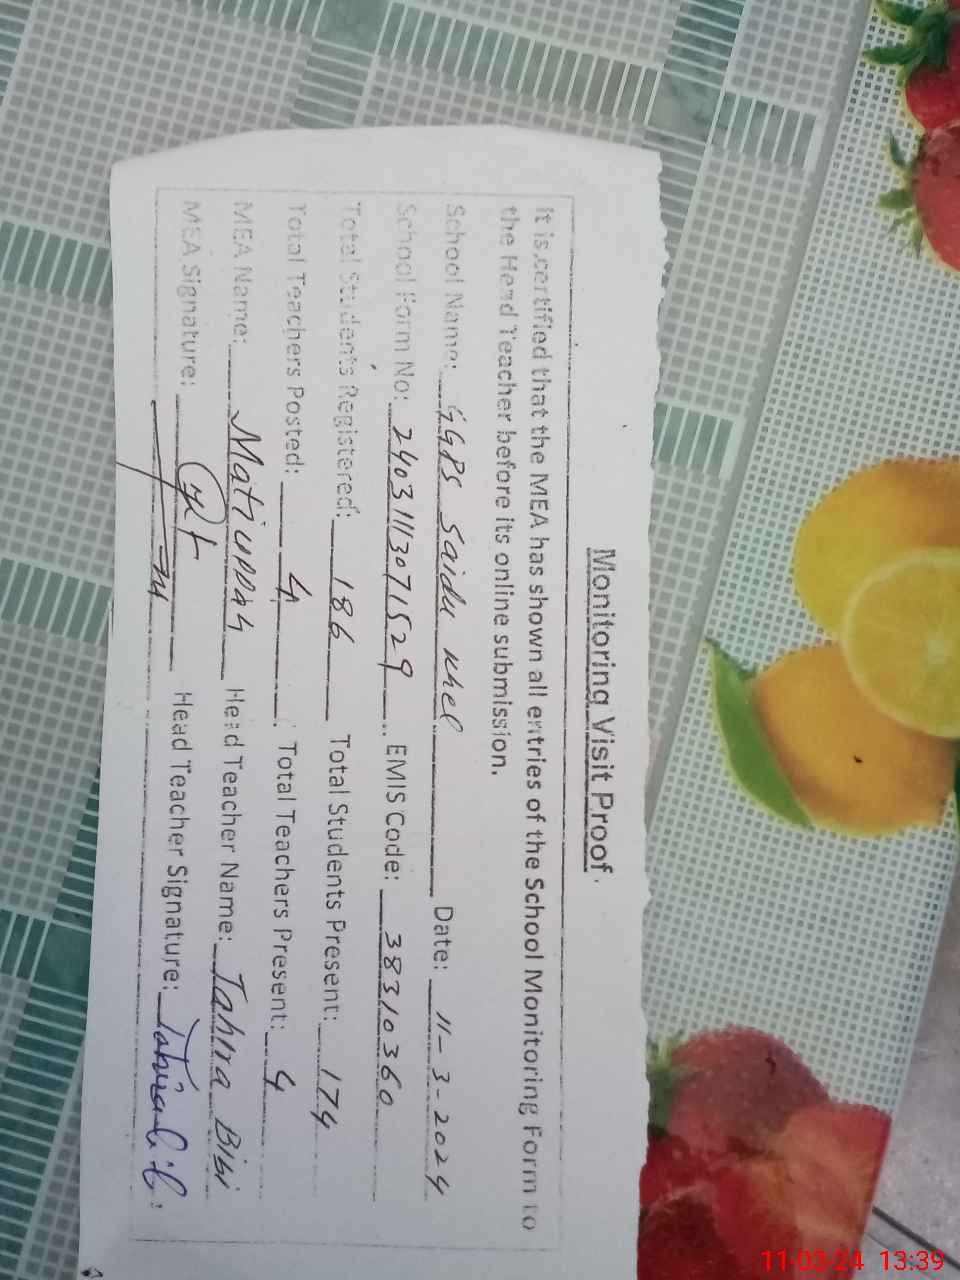 Monitoring Visit Proof
It is certified that the MEA has shown all entries of the School Monitoring Form to
the Head Teacher before its online submission.
School Name: GGPS Saidu Khel Date: 11-3-2024
School Form No: 24031113071529 EMIS Code: 38310360
Total Students Registered: 186 Total Students Present: 174
Total Teachers Posted: 4 Total Teachers Present: 4
MEA Name: Matiullah Head Teacher Name: Tahira Bibi
MEA Signature: Head Teacher Signature: Tahira bibi
11-03-24 13:39